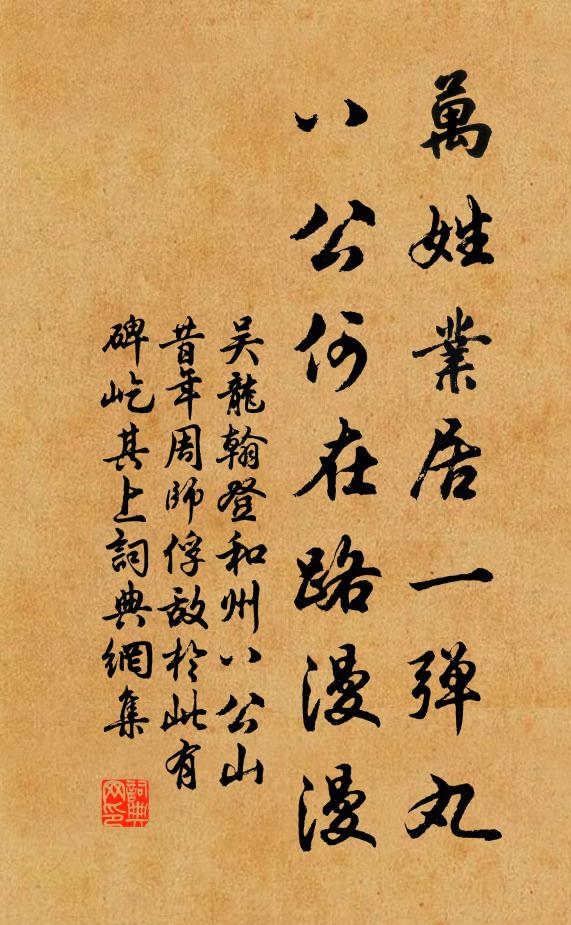 萬姓業居一彈丸
八公何在路漫漫
吴龍翰登和州八公山
昔年周師俘敌於此有
碑屹其上詞典網集
詞典网印